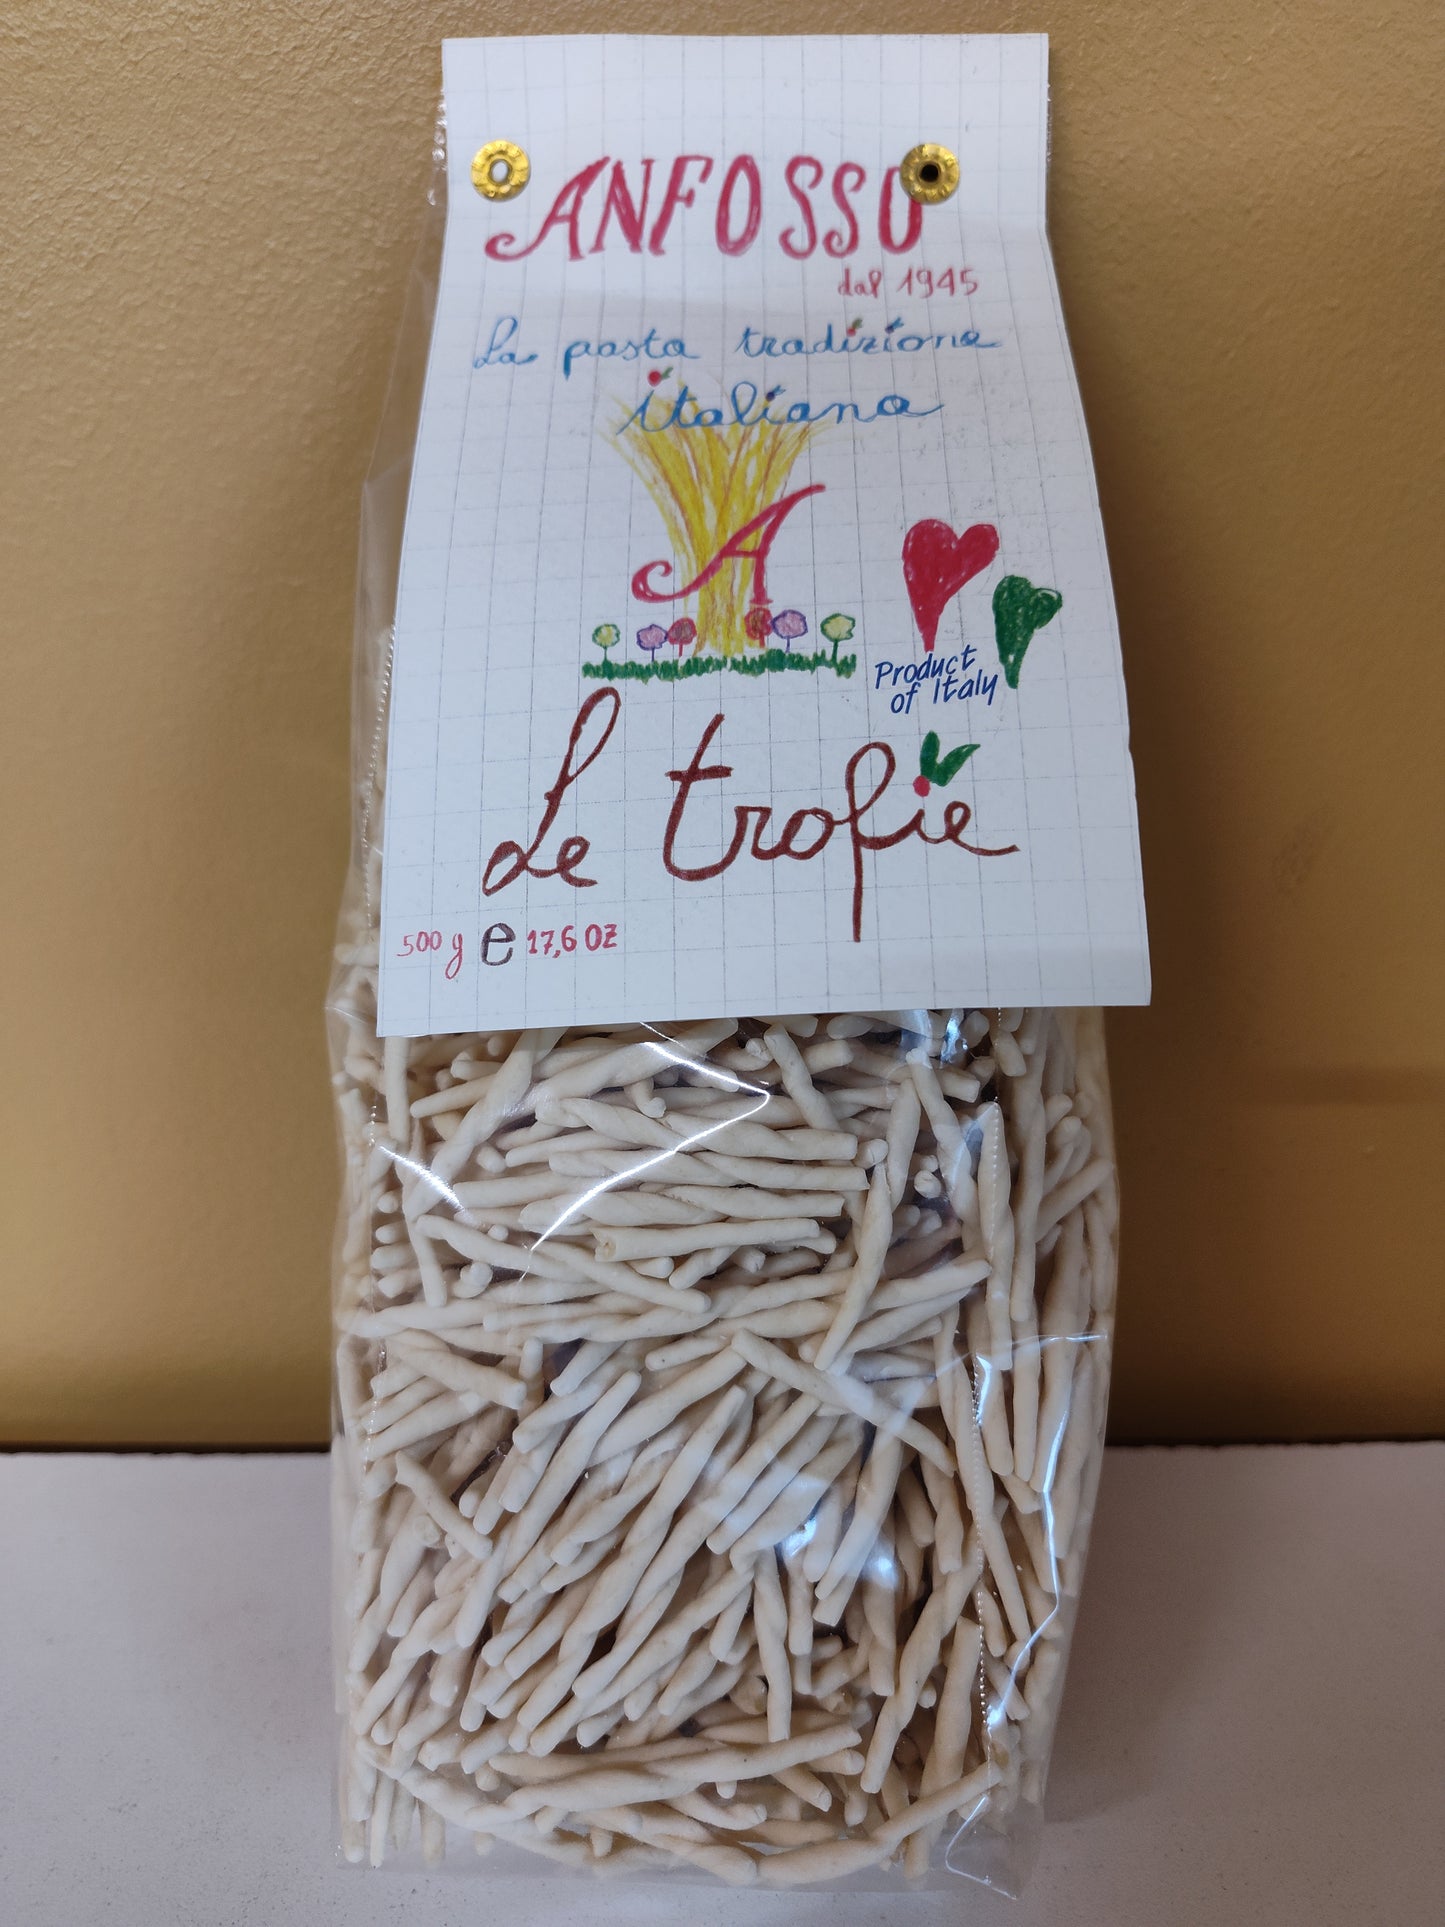 ANFOSSO
dal 1945
La pasta tradizione
italiana
A
Product
of Italy
Le trofie
500 g e 17,6 OZ